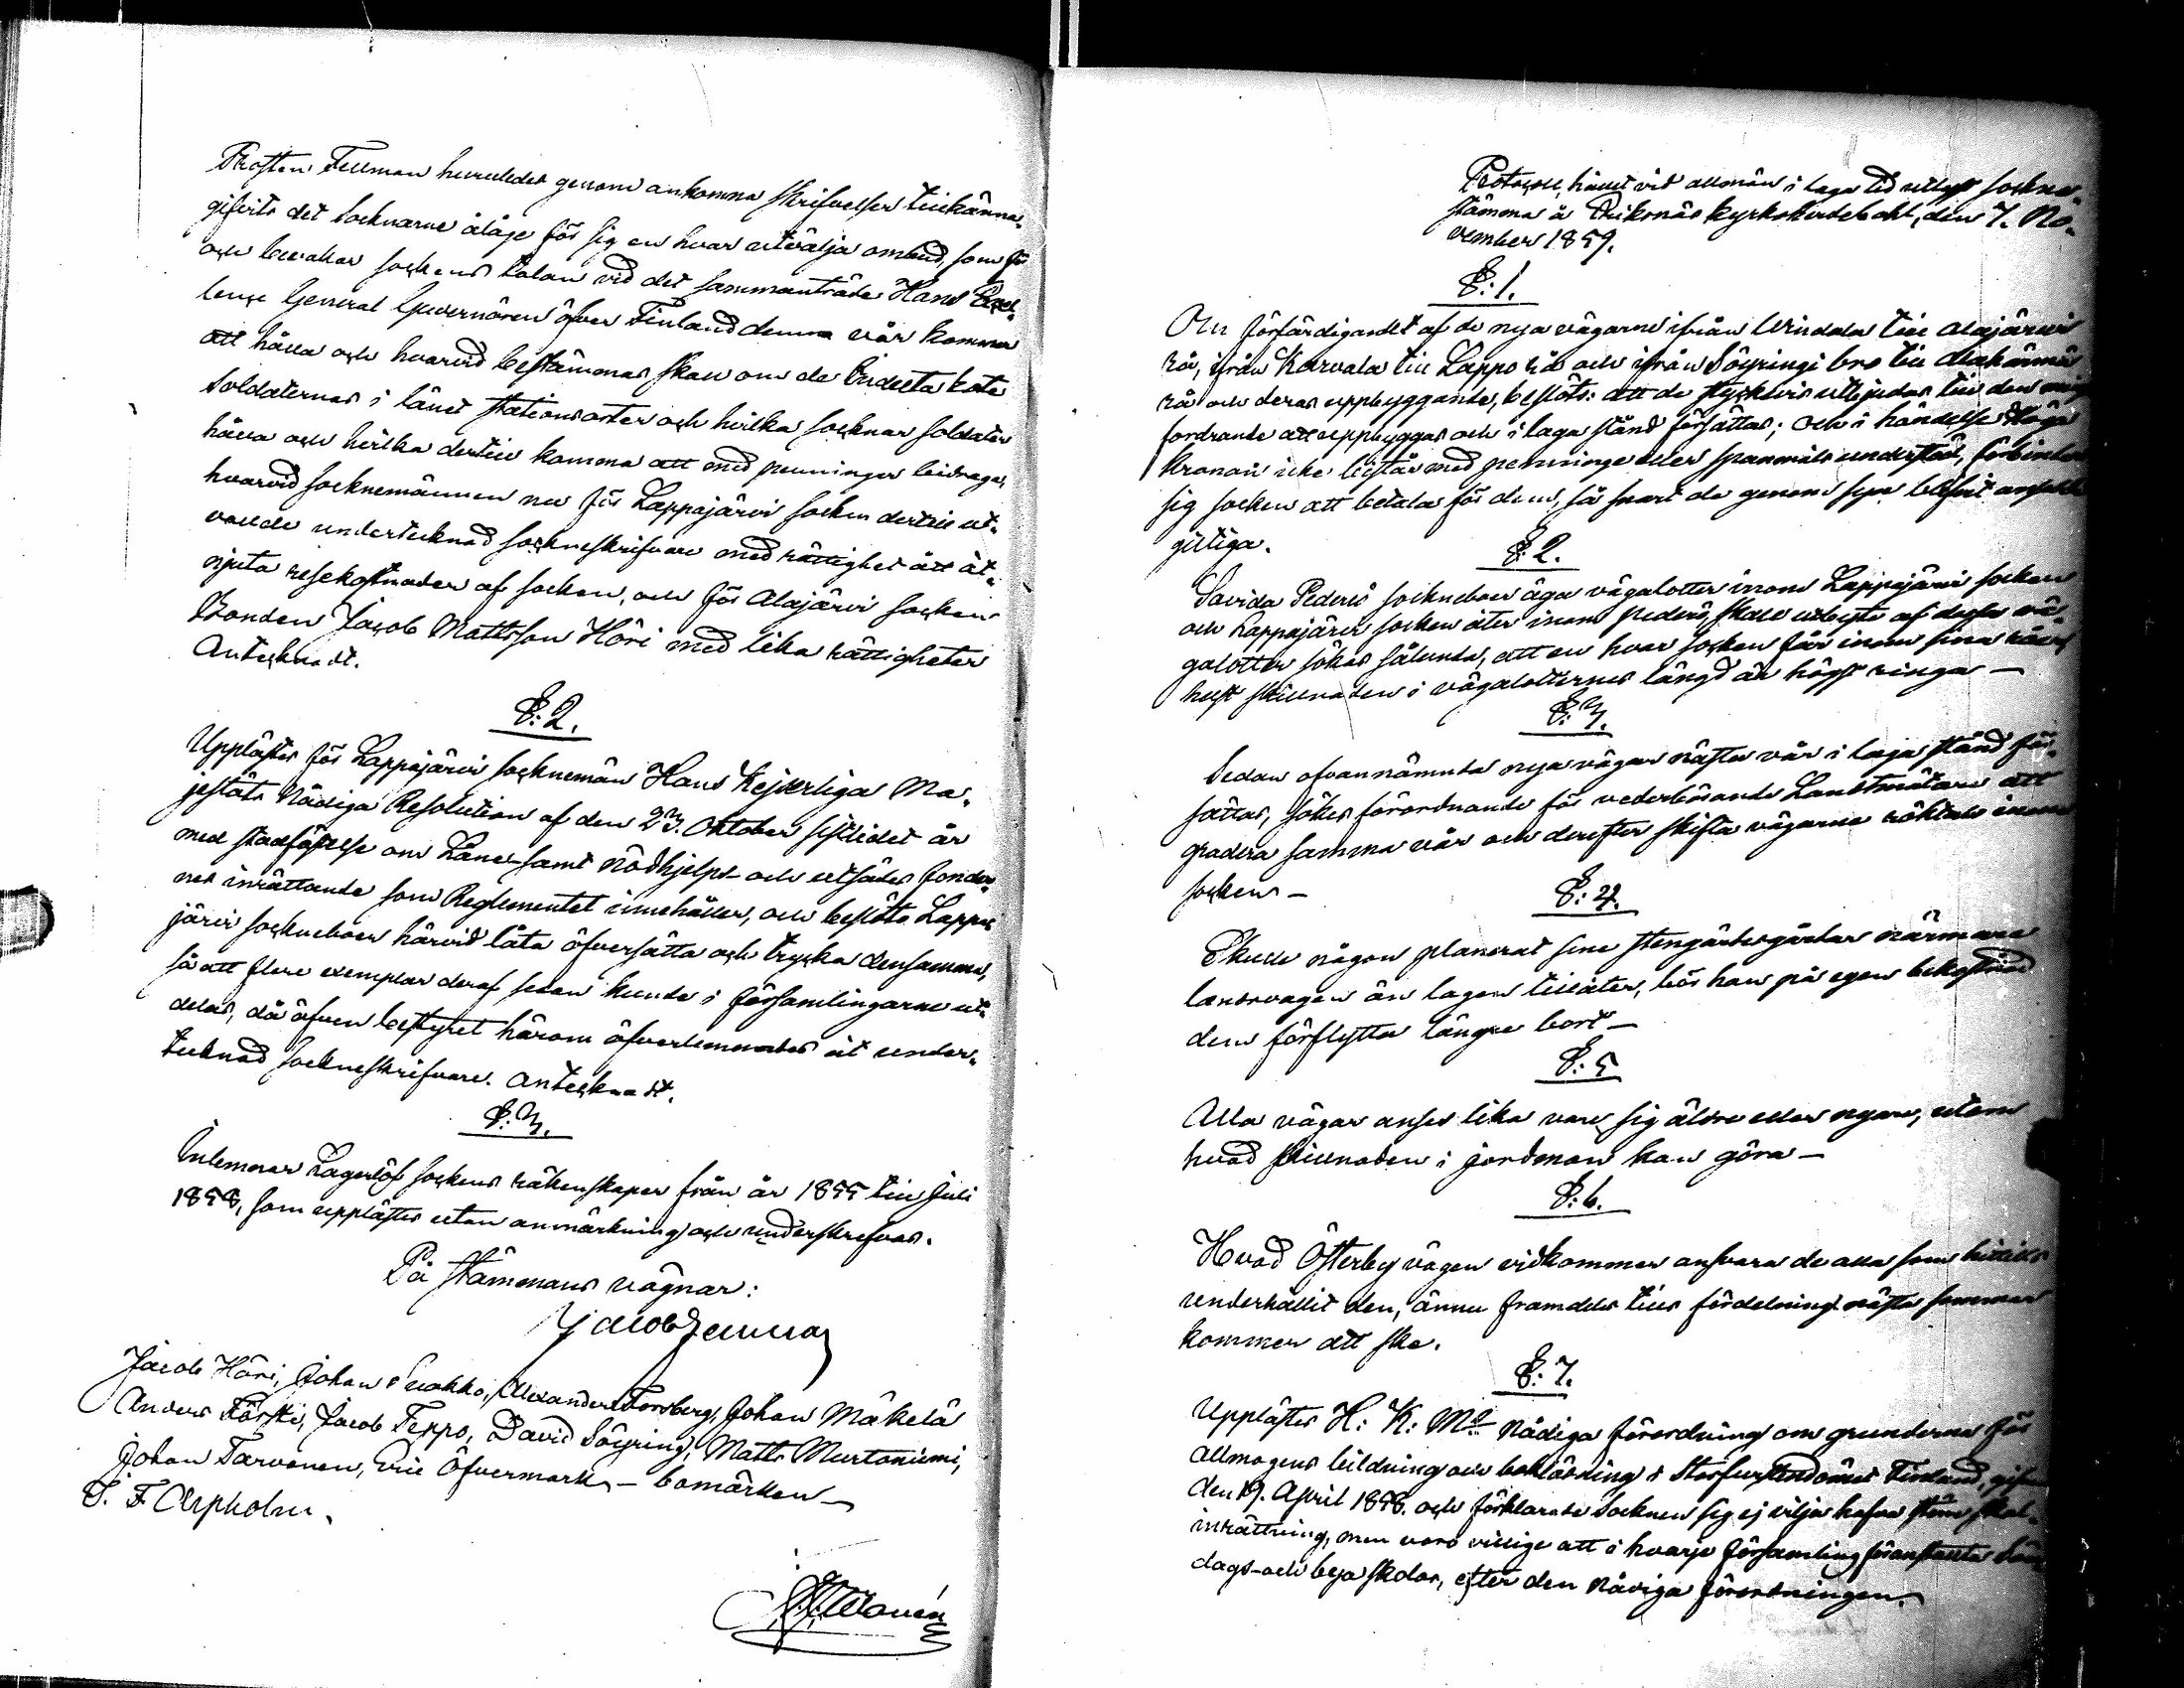 Prosten Fellman huruledes genom ankomna skrifvelser tillkänna-
gifvits det socknarne åläge för sig en hvar utvälja ombud, som för
och bevakar sockens talan vid det sammanträde Hans Excel-
lence General Guvernören öfver Finland denna vår kommer
att hålla och hvarvid bestämmas skall om de indelta
soldaternas i länet stationsorter och hvilka socknar soldater
hålla och hvilka dertill komma att med penningar bidraga,
hvarvid socknemännen nu för Lappajärvi socken dertill ut-
valde undertecknad sockneskrifvare med rättighet att åt-
njuta resekostnader af socken, och för Alajärvi socken
Bonden Jacob Mattsson Höri med lika rättigheter
Antecknadt.
§: 2.
Upplästes för Lappajärvi socknemän Hans Kejserliga Ma-
jestäts Nådiga Resolution af den 23. Oktober sistlidet år
med stadfästelse om Låne- samt Nödhjelps- och utsädes fonder-
nes inrättande som Reglementet innehåller, och beslöts Lappa-
järvi sockneboer härvid låta öfversätta och trycka densamma,
så att flere exemplar deraf sedan kunde i församlingarne ut-
delas, då äfven bestyret härom öfverlemnades åt under-
tecknad sockneskrifvare. Antecknadt.
§: 3.
Inlemnar Lagerlöf sockens räkenskaper från år 1855 till Juli
1858, som upplästes utan anmärkning och underskrefvos.
På Stämmans vägnar:
Jacob Fellman
Jacob Höri, Johan Alexander Forsberg, Johan Mäkelä
Anders Körsti, Jacob Teppo, David Söyring, Matts Murtoniemi,
Johan Tarvonen, Eric Öfvermark – bomärken –
J. F. Aspholm.
Protocoll, hållet vid allmän i laga tid utlyst sockne-
stämma å Eriksnäs kyrkoherdebohl, den 7. No-
vember 1859.
§: 1.
Om förfärdigandet af de nya vägarne ifrån Windala till Alajärvi
rå, ifrån Karvala till Lappo rå och ifrån Söyringi bro till
rå och deras uppbyggande, beslöts: att de styckevis utbjudas till den
fordrande att uppbyggas och i laga stånd försättas; och i händelse Höga
Kronan icke bistår med penninge eller spannmåls understöd, förbinder
sig socken att betala för dem, så snart de genom syn blifvit ansedde
giltiga.
§: 2.
Savida Pedersö sockneboer äga vägalotter inom Lappajärvi socken
och Lappajärvi socken åter inom Pedersö, skall utbyte af dessa vä-
galotter sökas sålunda, att en hvar socken får inom sina råer,
helst skillnaden i vägalotternes längd är högst ringa –
§: 3.
Sedan ofvannämnda nya vägar nästa vår i laga stånd för-
sattas, sökes förordnande för vederbörande Landtmätare att
gradera samma vår och derefter skifta vägarne röktals inom
socken –
§: 4.
Skulle någon planerat sine stengärdesgårdar närmare
landsvägen än lagen tillåter, bör han på egen bekostnad
dem förflytta längre bort –
§: 5
Alla vägar anses lika vare sig äldre eller nyare, utom
hvad skillnaden i jordmon kan göra –
§: 6.
Hvad Österby vägen vidkommer ansvara de alla som hittills
underhållit den, ännu framdeles tills fördelning nästa sommar
kommer att ske.
§: 7.
Upplästes H: K: M:s Nådiga förordning om grunderna för
Allmogens bildning och boklärdning i Storfurstendömet Finland, gifven
den 19. April 1858. och förklarade Socknen sig ej vilja hafva skol-
inrättning, men voro villige att i hvarje församling föranstalta Sön-
dags- och byaskolor, efter den Nådiga förordningen.